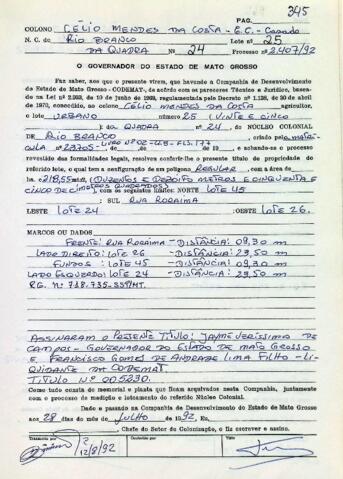 345
PAG.
COLONO CÉLIO MENDES DA COSTA - E.C. - Casado
N. C. do RIO BRANCO Lote nº 25
DA QUADRA Nº 24 Processo nº 2.407/92
O GOVERNADOR DO ESTADO DE MATO GROSSO
Faz saber, aos que o presente virem, que havendo a Companhia de Desenvolvimento
do Estado de Mato Grosso - CODEMAT-, de acordo com os pareceres Técnico e Jurídico, basea-
dos na Lei nº 2.993, de 13 de junho de 1969, regulamentada pelo Decreto nº 1.138, de 30 de abril
de 1970, concedido, ao colono CÉLIO MENDES DA COSTA agricultor,
o lote URBANO número 25 (VINTE E CINCO
) da QUADRA nº 24, do NÚCLEO COLONIAL
DE RIO BRANCO pela matri-
LIVRO Nº 02-
cula nº 23705- de 19 , e achando-se o processo
revestido das formalidades legais, resolveu conferir-lhe o presente título de propriedade
do referido lote, o qual tem a configuração de um polígono REGULAR, com a área de
ha. 218,55m² (DUZENTOS E DEZOITO METROS E CINQUENTA E
CINCO DECIMETROS QUADRADOS), com os seguintes limites: NORTE LOTE 45
: SUL RUA RORAIMA
LESTE LOTE 24 OESTE LOTE 26.
MARCOS OU DADOS
FRENTE: RUA RORAIMA - DISTÂNCIA: 09,30 m
LADO DIREITO: LOTE 26 - DISTÂNCIA: 23,50 m
FUNDOS: LOTE 45 - DISTÂNCIA: 09,30 m
LADO ESQUERDO: LOTE 24 - DISTÂNCIA: 23,50 m
RG. Nº 718.735-SSP/MT.
ASSINARAM O PRESENTE TÍTULO: JAYME VERISSIMO DE
CAMPOS - GOVERNADOR DO ESTADO DE MATO GROSSO
E FRANCISCO GOMES DE ANDRADE LIMA FILHO - LI-
QUIDANTE DA CODEMAT.
TÍTULO Nº 005230.
Como tudo consta do memorial e planta que ficam arquivados nesta Companhia, juntamente
com o processo de medição e loteamento do referido Núcleo Colonial.
Dado e passado na Companhia de Desenvolvimento do Estado de Mato Grosso
aos 28 dias do mês de JULHO de 1992, Eu,
Chefe do Setor de Colonização, o fiz escrever e assino.
Transcrito por Conferido por Visto
12/8/92